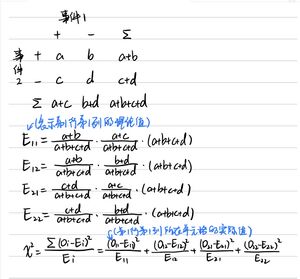 事件1
+ - Σ
事件2 + a b a+b
- c d c+d
Σ a+c b+d a+b+c+d
(表示第1行第1列的理论值)
E₁₁ = (a+b)/(a+b+c+d) · (a+c)/(a+b+c+d) · (a+b+c+d)
E₁₂ = (a+b)/(a+b+c+d) · (b+d)/(a+b+c+d) · (a+b+c+d)
E₂₁ = (c+d)/(a+b+c+d) · (a+c)/(a+b+c+d) · (a+b+c+d)
E₂₂ = (c+d)/(a+b+c+d) · (b+d)/(a+b+c+d) · (a+b+c+d)
(第1行第1列所在单元格的实际值)
χ² = Σ(Oi-Ei)²/Ei = (O₁₁-E₁₁)²/E₁₁ + (O₁₂-E₁₂)²/E₁₂ + (O₂₁-E₂₁)²/E₂₁ + (O₂₂-E₂₂)²/E₂₂